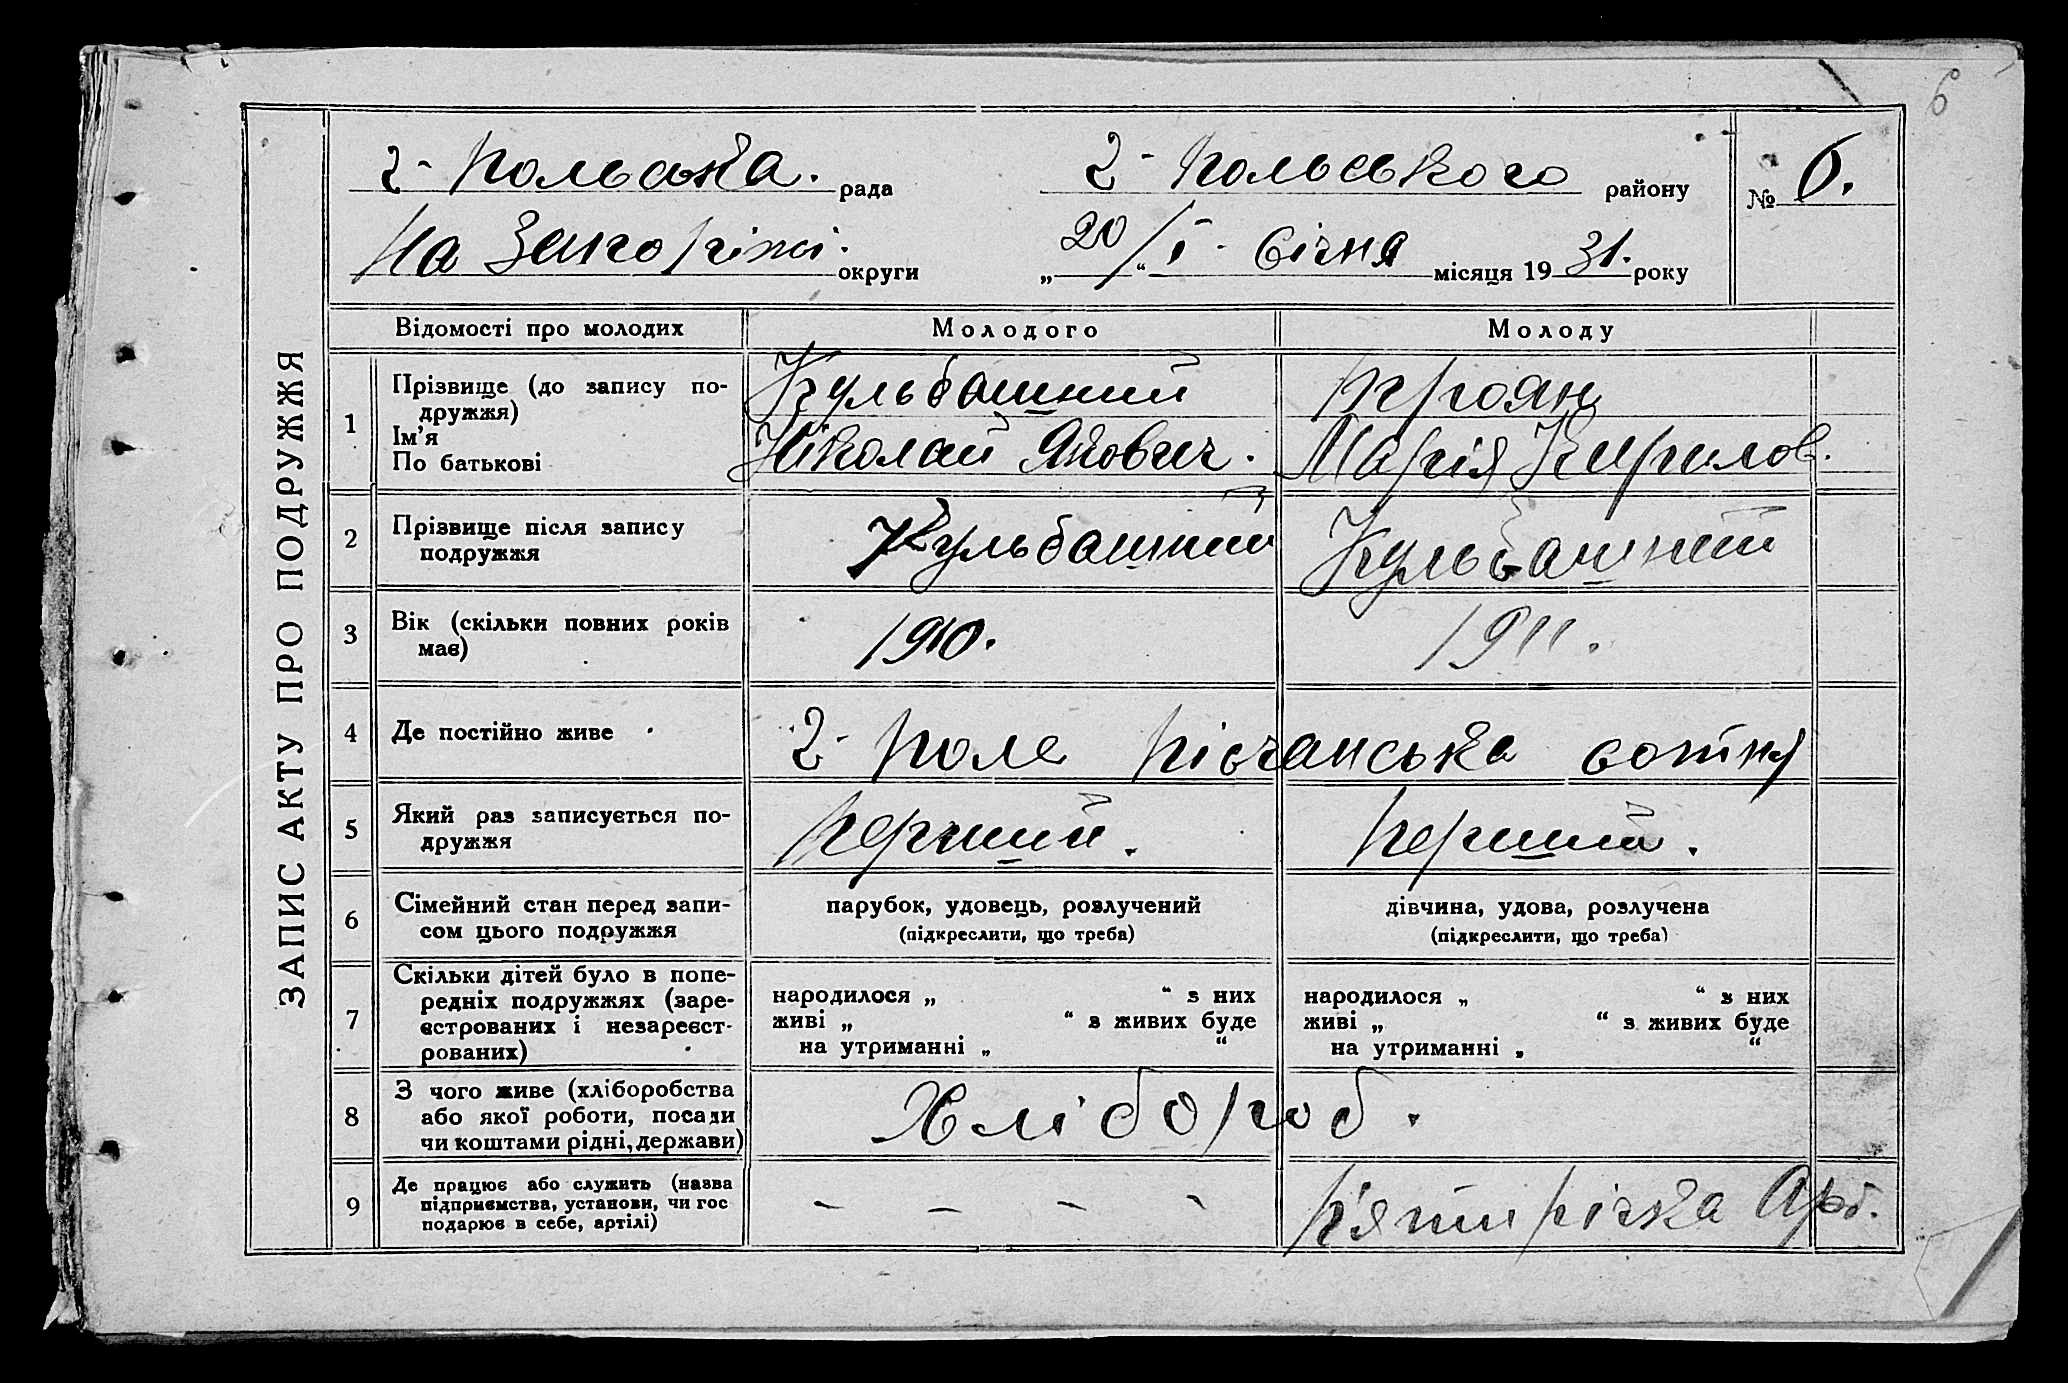 6
2- Польська. рада
2- Польського району
№ 6.
На Запоріжжі. округи
„20/I“ Січня місяця 1931. року
ЗАПИС АКТУ ПРО ПОДРУЖЖЯ
Відомості про молодих
Молодого
Молоду
1
Прізвище (до запису по-
дружжя)
Ім'я
По батькові
Кульбашний
Ніколай Якович.
Проян
Марія Кирилов.
2
Прізвище після запису
подружжя
Кульбашний
Кульбашний
3
Вік (скільки повних років
має)
1910.
1911.
4
Де постійно живе
2- Поле Пісчанська сотня
5
Який раз записується по-
дружжя
Перший.
Перший.
6
Сімейний стан перед запи-
сом цього подружжя
парубок, удовець, розлучений
(підкреслити, що треба)
дівчина, удова, розлучена
(підкреслити, що треба)
7
Скільки дітей було в попе-
редніх подружжях (заре-
єстрованих і незареєст-
рованих)
народилося „ “ з них
живі „ “ з живих буде
на утриманні „ “
народилося „ “ з них
живі „ “ з живих буде
на утриманні „ “
8
З чого живе (хліборобства
або якої роботи, посади
чи коштами рідні, держави)
Хлібороб.
9
Де працює або служить (назва
підприємства, установи, чи гос
подарює в себе, артілі)
- - - -
П'ятирічка Арт.